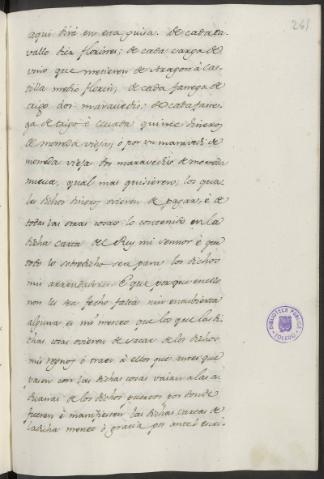 241
aqui dirè en esta guisa. De cada ca-
vallo diez florines; de cada carga de
vino que metieren de Aragon à Cas-
tilla medio florin; de cada fanega de
trigo dos maravedis; de cada fane-
ga de trigo è cevada quince dineros
de moneda vieja, ò por un maravedi de
moneda vieja dos maravedis de moneda
nueva, qual mas quisieren, los qua-
les dichos dineros ovieren de pagar, è de
todas las otras cosas lo contenido en la
dicha carta del Rey mi sennor è que
todo lo sobredicho sea para los dichos
mis arrendadores. E que porque en ello
non les sea fecho falta nin encubierta
alguna es mi merced que los que las di-
chas cosas ovieren de sacar de los dichos
mis regnos ò traer à ellos que antes que
pasen con las dichas cosas vaian a las a-
duanas de los dichos puertos por donde
fueren è manifiesten las dichas cartas de
la dicha merced ò gracia por ante el escri-
BIBLIOTECA PUBLICA
TOLEDO